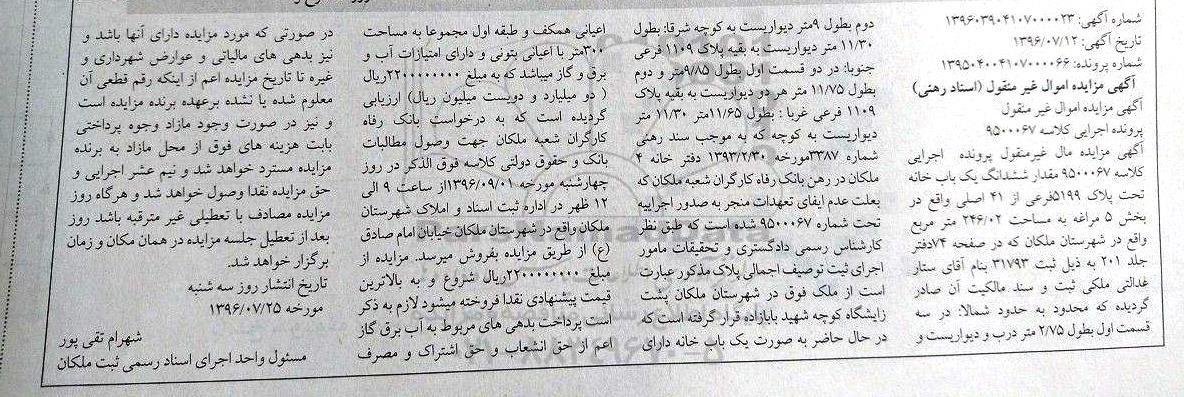 شماره آگهی: ۱۳۹۶۰۳۹۰۴۱۰۷۰۰۰۰۲۳
تاریخ آگهی: ۱۳۹۶/۰۷/۱۲
شماره پرونده: ۱۳۹۵۰۴۰۰۴۱۰۷۰۰۰۰۶۶
آگهی مزایده اموال غیر منقول (اسناد رهنی)
آگهی مزایده اموال غیر منقول
پرونده اجرایی کلاسه ۹۵۰۰۰۶۷
آگهی مزایده مال غیرمنقول پرونده اجرایی
کلاسه ۹۵۰۰۰۶۷ مقدار ششدانگ یک باب خانه
تحت پلاک ۵۱۹۹فرعی از ۴۱ اصلی واقع در
بخش ۵ مراغه به مساحت ۲۴۶/۰۲ متر مربع
واقع در شهرستان ملکان که در صفحه ۷۴دفتر
جلد ۲۰۱ به ذیل ثبت ۳۱۷۹۳ بنام آقای ستار
غدالتی ملکی ثبت و سند مالکیت آن صادر
گردیده که محدود به حدود شمالا: در سه
قسمت اول بطول ۲/۷۵ متر درب و دیواریست و
دوم بطول ۹متر دیواریست به کوچه شرقا: بطول
۱۱/۳۰ متر دیواریست به بقیه پلاک ۱۱۰۹ فرعی
جنوبا: در دو قسمت اول بطول ۹/۸۵متر و دوم
بطول ۱۱/۷۵ متر هر دو دیواریست به بقیه پلاک
۱۱۰۹ فرعی غربا : بطول ۱۱/۶۵متر ۱۱/۳۰ متر
دیواریست به کوچه که به موجب سند رهنی
شماره ۳۳۸۷مورخه ۱۳۹۳/۲/۳۰ دفتر خانه ۴
ملکان در رهن بانک رفاه کارگران شعبه ملکان که
بعلت عدم ایفای تعهدات منجر به صدور اجراییه
تحت شماره ۹۵۰۰۰۶۷ شده است که طبق نظر
کارشناس رسمی دادگستری و تحقیقات مامور
اجرای ثبت توصیف اجمالی پلاک مذکور عبارت
است از ملک فوق در شهرستان ملکان پشت
زایشگاه کوچه شهید بابازاده قرار گرفته است که
در حال حاضر به صورت یک باب خانه دارای
اعیانی همکف و طبقه اول مجموعا به مساحت
۳۰۰متر با اعیانی بتونی و دارای امتیازات آب و
برق و گاز میباشد که به مبلغ ۲۲۰۰۰۰۰۰۰۰ریال
( دو میلیارد و دویست میلیون ریال) ارزیابی
گردیده است که به درخواست بانک رفاه
کارگران شعبه ملکان جهت وصول مطالبات
بانک و حقوق دولتی کلاسه فوق الذکر در روز
چهارشنبه مورخه ۱۳۹۶/۰۹/۰۱از ساعت ۹ الی
۱۲ ظهر در اداره ثبت اسناد و املاک شهرستان
ملکان واقع در شهرستان ملکان خیابان امام صادق
(ع) از طریق مزایده بفروش میرسد. مزایده از
مبلغ ۲۲۰۰۰۰۰۰۰۰ریال شروع و به بالاترین
قیمت پیشنهادی نقدا فروخته میشود لازم به ذکر
است پرداخت بدهی های مربوط به آب برق گاز
اعم از حق انشعاب و حق اشتراک و مصرف
در صورتی که مورد مزایده دارای آنها باشد و
نیز بدهی های مالیاتی و عوارض شهرداری و
غیره تا تاریخ مزایده اعم از اینکه رقم قطعی آن
معلوم شده یا نشده برعهده برنده مزایده است
و نیز در صورت وجود مازاد وجوه پرداختی
بابت هزینه های فوق از محل مازاد به برنده
مزایده مسترد خواهد شد و نیم عشر اجرایی و
حق مزایده نقدا وصول خواهد شد و هرگاه روز
مزایده مصادف با تعطیلی غیر مترقبه باشد روز
بعد از تعطیل جلسه مزایده در همان مکان و زمان
برگزار خواهد شد.
تاریخ انتشار روز سه شنبه
مورخه ۱۳۹۶/۰۷/۲۵
شهرام تقی پور
مسئول واحد اجرای اسناد رسمی ثبت ملکان